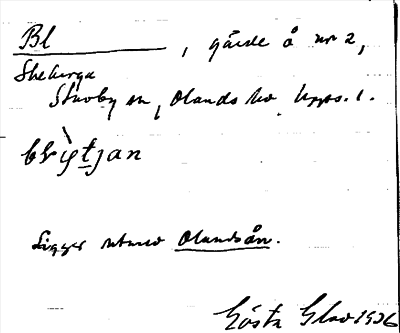 Bl , gärde å nr 2,
Skeberga
Skuvby sn, Olands hd Upps. l.
Ligger utmed Olandsån.
Gösta Glad 1926